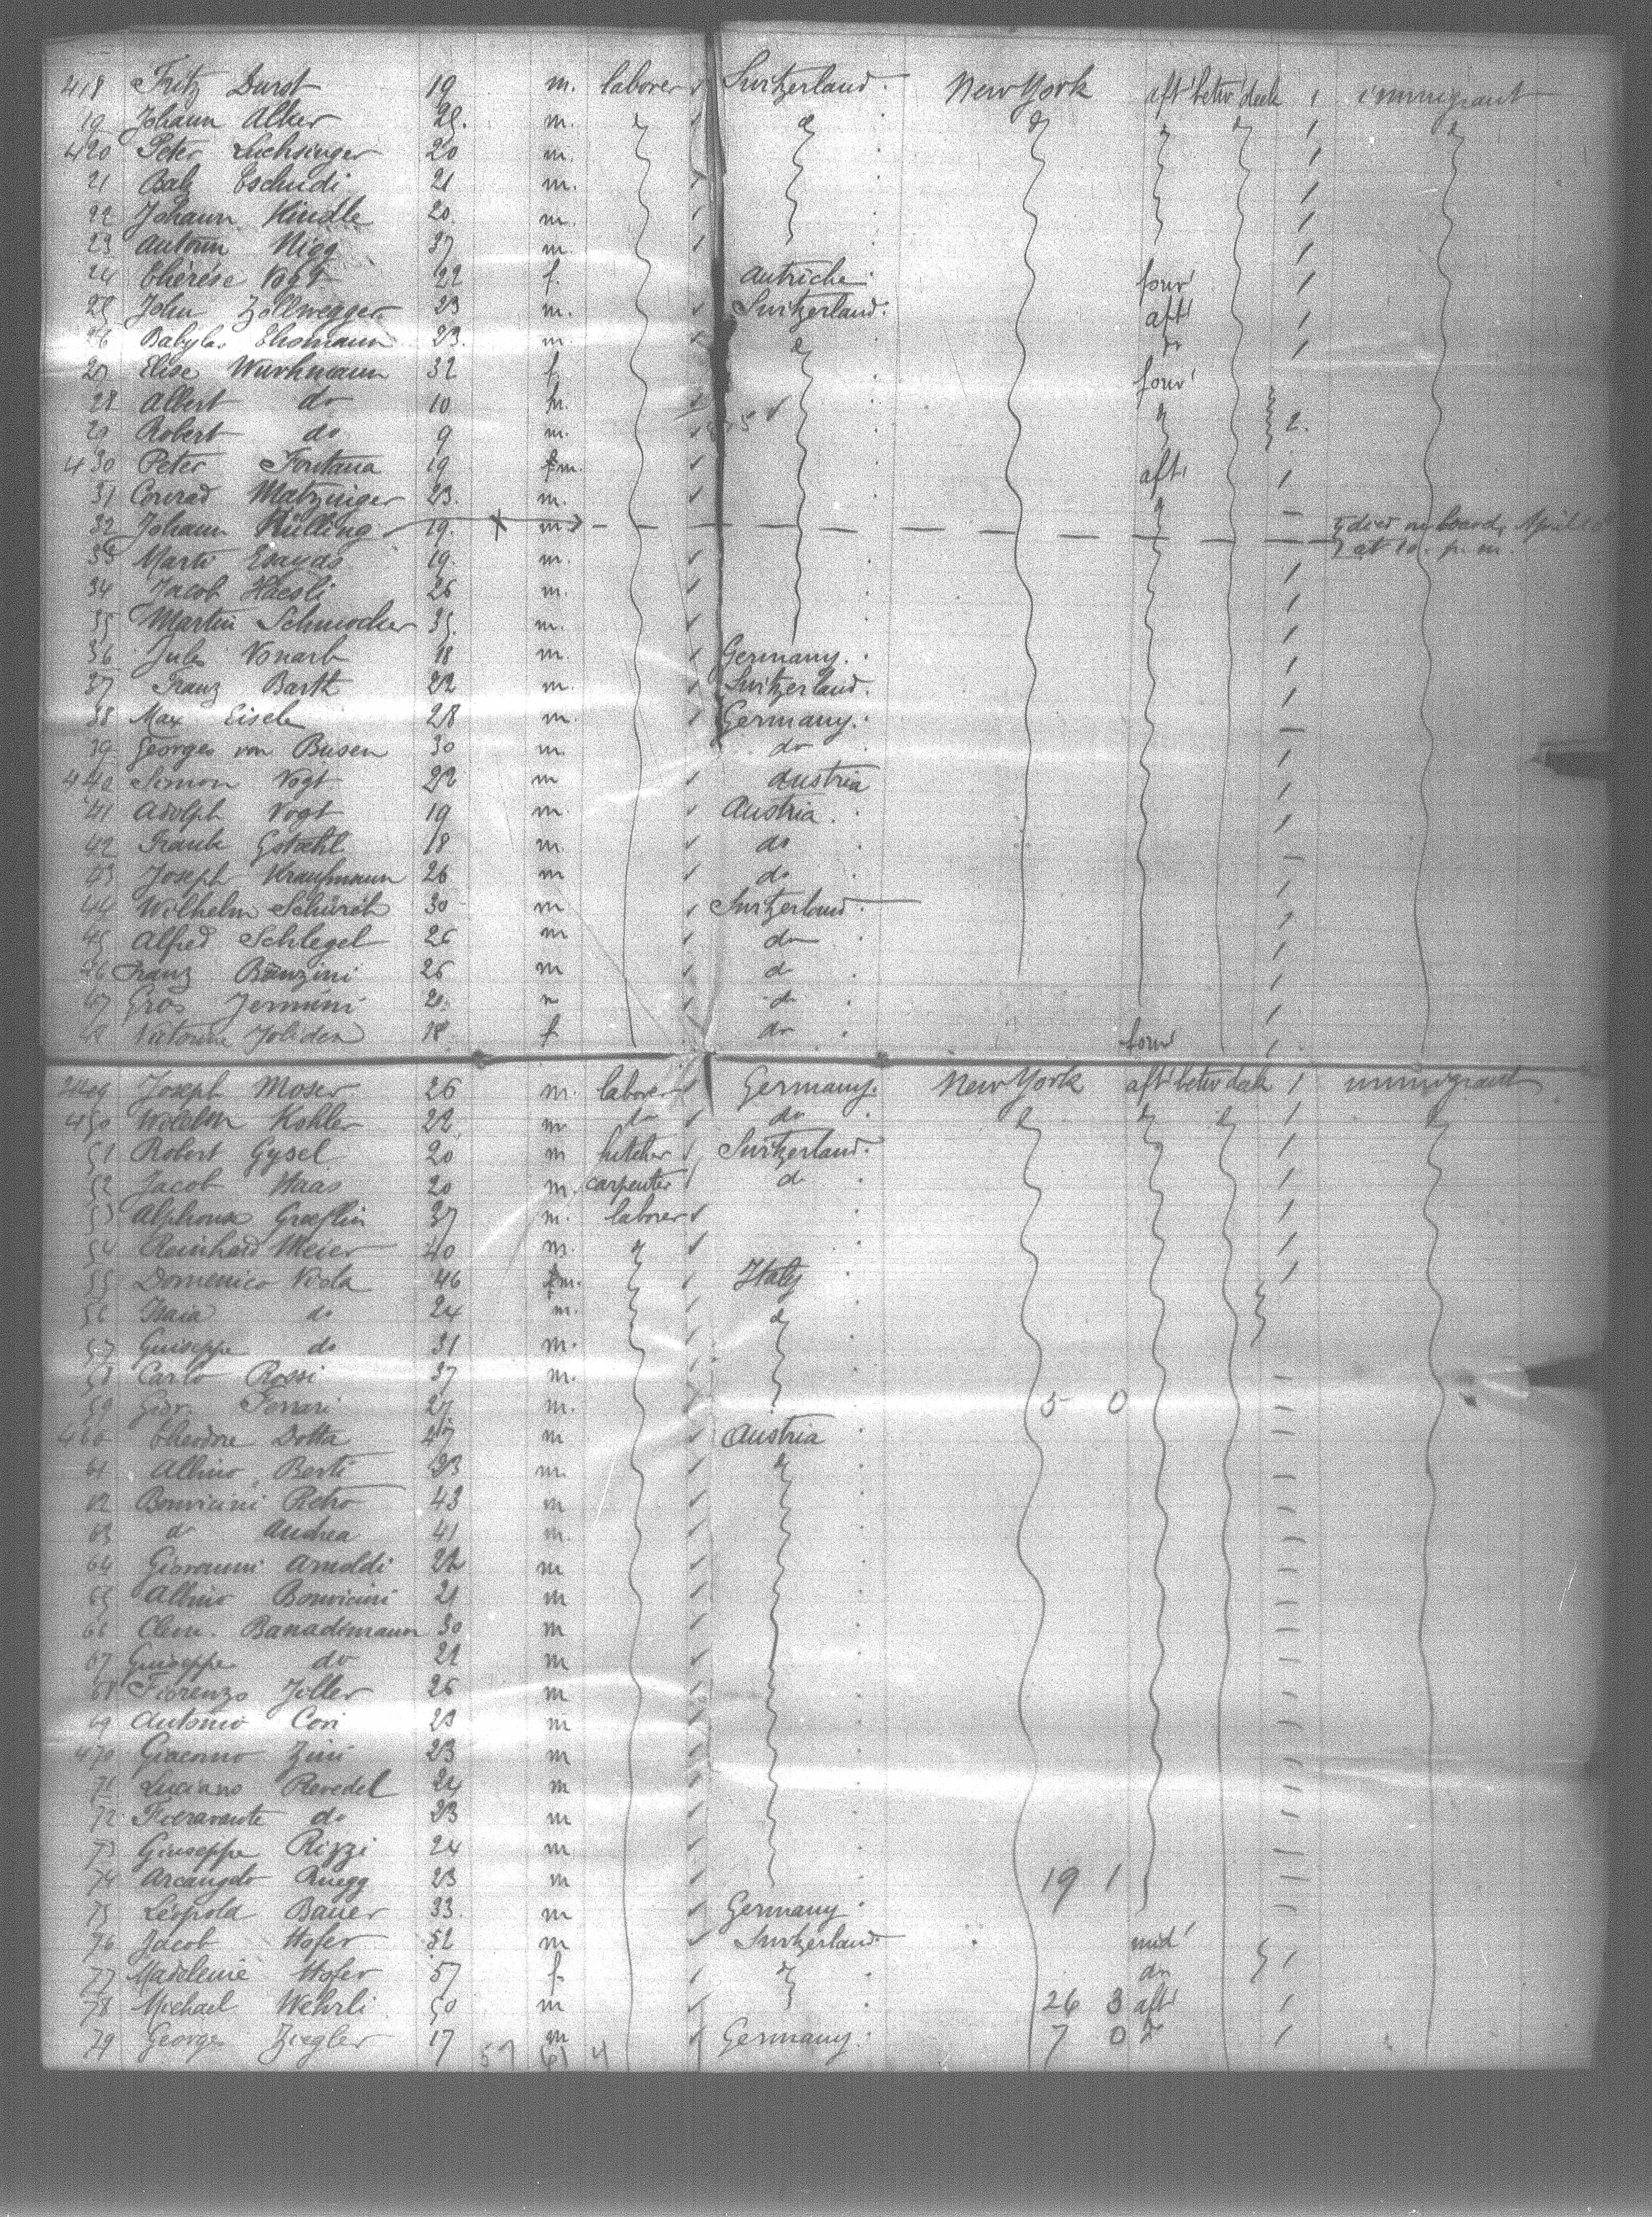 418 Fritz Durst 19 m. laborer Switzerland. New York aft' betw' deck 1 immigrant
19 Johann Alker 28. m. 1
420 Peter Luchsinger 20 m. 1
21 Balz Tschudi 21 m. 1
22 Johann Kindle 20. m. 1
23 Antonin Nigg 37 m. 1
24 Thérèse Vogt 22 f. Autriche forw' 1
25 John Zollwegger 23 m. Switzerland. aft' 1
26 Babylas Ehsmann 23. m. do 1
27 Elise Wurhmann 32 f. forw'
28 Albert do 10 m.
29 Robert do 9 m. 2.
430 Peter Fontana 19 m. aft' 1
31 Conrad Matzinger 23. m.
32 Johann Rülling 19. m. died on board, April
at 10. p. m.
33 Martò 19. m. 1
34 Jacob Haesli 26 m. 1
35 Martin Schmocker 35. m. 1
36 Jules Vonarb 18 m. Germany. 1
37 Franz Barth 22 m. Switzerland. 1
38 Max Eisele 28 m. Germany.
39 Georges von Busen 30 m. do 1
440 Simon Vogt 22 m Austria 1
41 Adolph Vogt 19 m. Austria. 1
42 Frank Gstoehl 18 m. do
43 Joseph Kraufmann 26 m do 1
44 Wilhelm Schürch 30 m Switzerland. 1
45 Alfred Schlegel 26 m do 1
46 Franz Bänzini 26 m do 1
47 Gros Jermini 20. m do 1
48 Victorine Joliden 18. f do forw' 1
449 Joseph Moser 26 m. laborer Germany. New York aft' betw deck 1 immigrant
450 Wilelm Kohler 22. m do do 1
51 Robert Gysel 20 m butcher Switzerland. 1
52 Jacob Haas 20 m. carpenter do 1
53 Alphonse Graeflin 37 m. laborer 1
54 Reinhard Meier 40 m. 1
55 Domenico Viola 46 m. Italy 1
56 Isaia do 24 m.
57 Guiseppe do 31 m.
58 Carlo Rossi 37 m.
59 Giov. Ferrari 27 m. 5 0
460 Theodore Dotta 47 m Austria
61 Albino Berti 23 m.
62 Bonvicini Pietro 43 m
63 do Andrea 41 m.
64 Giovanni Arnoldi 22 m
65 Albino Bonvicini 21 m
66 Clem. Banadimann 30 m
67 Guiseppe do 21 m
68 Fiorenzo Joller 26 m
69 Antonio Cori 23 m
470 Giacomo Zini 23 m
71 Luciano Revedel 24 m
72 Fioravante do 23 m
73 Giuseppe Rizzi 24 m
74 Arcangelo Ruegg 23 m 19 1
75 Léopold Bauer 33. m Germany
76 Jacob Hofer 52 m Switzerland mid'
77 Madeleine Hofer 57 f. do 1
78 Michael Wehrli 50 m 26 3 aft' 1
79 Georges Ziegler 17 m Germany. 7 0 do 1
57 61 4